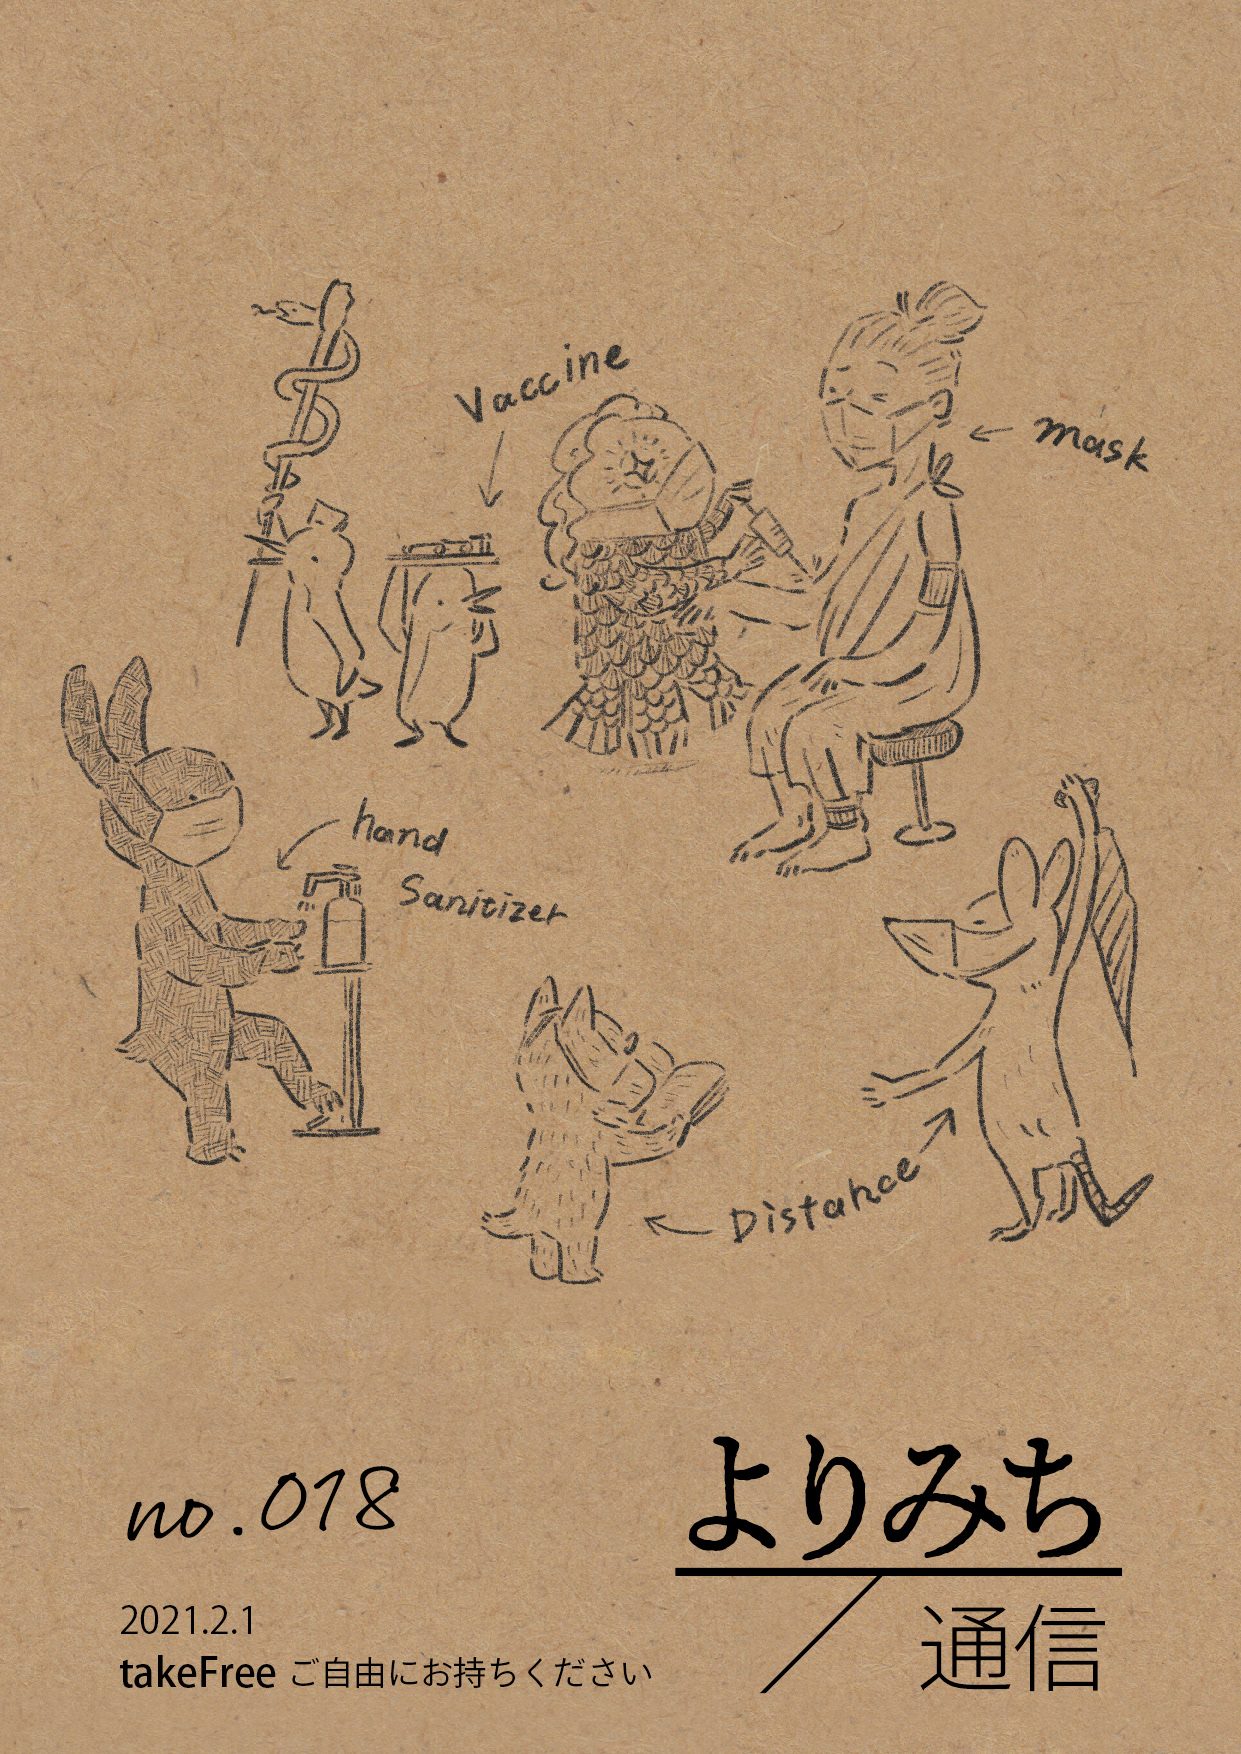 Vaccine
mask
hand
Sanitizer
Distance
no.018
よりみち
通信
2021.2.1
takeFree ご自由にお持ちください